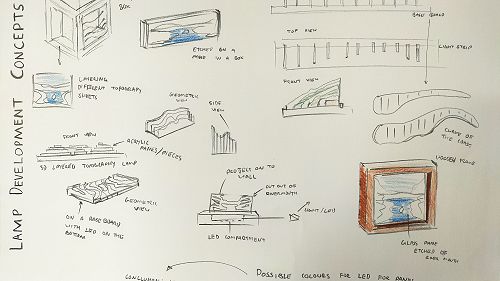 LAMP DEVELOPMENT CONCEPTS
BOX
ETCHED ON A
PANEL IN A BOX
LAYERING
DIFFERENT TOPOGRAPHY
SHEETS
GEOMETRIC
VIEW
SIDE
VIEW
TOP VIEW
BASE BOARD
LIGHT STRIP
FRONT VIEW
CURVE OF
THE COAST
FRONT VIEW
ACRYLIC
PANES/PIECES
3D LAYERED TOPOGRAPHY LAMP
GEOMETRIC
VIEW
ON A BASE BOARD
WITH LED ON THE
BOTTOM
PROJECTS ON TO
WALL
CUT OUT OF
LIGHT/LED
LED COMPARTMENT
WOODEN FRAME
GLASS PANE
ETCHED OF
POSSIBLE COLOURS FOR LED FOR